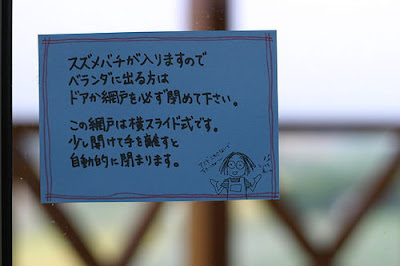 スズメバチが入りますので
ベランダに出る方は
ドアか網戸を必ず閉めて下さい。
この網戸は横スライド式です。
少し開けて手を離すと
自動的に閉まります。